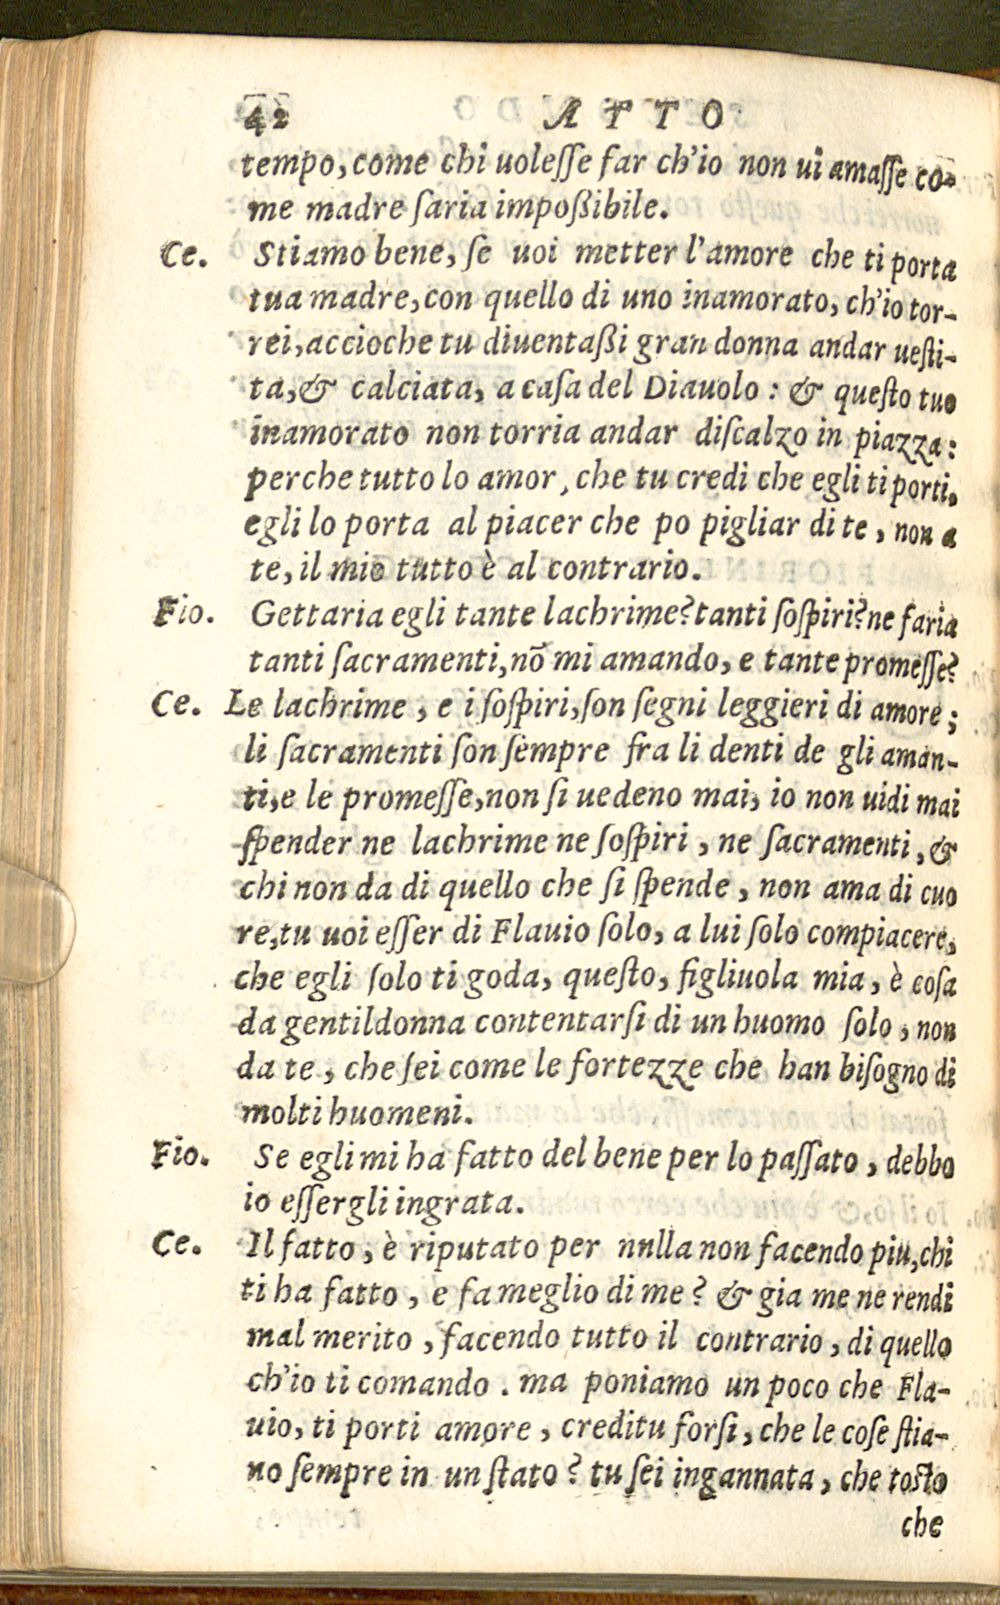 42 ATTO
tempo, come chi uoleſſe far ch'io non ui amaſſe co-
me madre ſaria impoßibile.
Ce. Stiamo bene, ſe uoi metter l'amore che ti porta
tua madre, con quello di uno inamorato, ch'io tor-
rei, accioche tu diuentaßi gran donna andar ueſti-
ta, & calciata, a caſa del Diauolo: & queſto tuo
inamorato non torria andar diſcalzo in piazza:
perche tutto lo amor, che tu credi che egli ti porti,
egli lo porta al piacer che po pigliar di te, non a
te, il mio tutto è al contrario.
Fio. Gettaria egli tante lachrime? tanti ſoſpiri? ne faria
tanti ſacramenti, nõ mi amando, e tante promeſſe?
Ce. Le lachrime, e i ſoſpiri, ſon ſegni leggieri di amore;
li ſacramenti ſon ſempre fra li denti de gli aman-
ti, e le promeſſe, non ſi uedeno mai, io non uidi mai
ſpender ne lachrime ne ſoſpiri, ne ſacramenti, &
chi non da di quello che ſi ſpende, non ama di cuo
re, tu uoi eſſer di Flauio ſolo, a lui ſolo compiacere,
che egli ſolo ti goda, queſto, figliuola mia, è coſa
da gentildonna contentarſi di un huomo ſolo, non
da te, che ſei come le fortezze che han biſogno di
molti huomeni.
Fio. Se egli mi ha fatto del bene per lo paſſato, debbo
io eſſergli ingrata.
Ce. Il fatto, è riputato per nnlla non facendo piu, chi
ti ha fatto, e fa meglio di me? & gia me ne rendi
mal merito, facendo tutto il contrario, di quello
ch'io ti comando. ma poniamo un poco che Fla-
uio, ti porti amore, creditu forſi, che le coſe ſtia-
no ſempre in un ſtato? tu ſei ingannata, che toſto
che